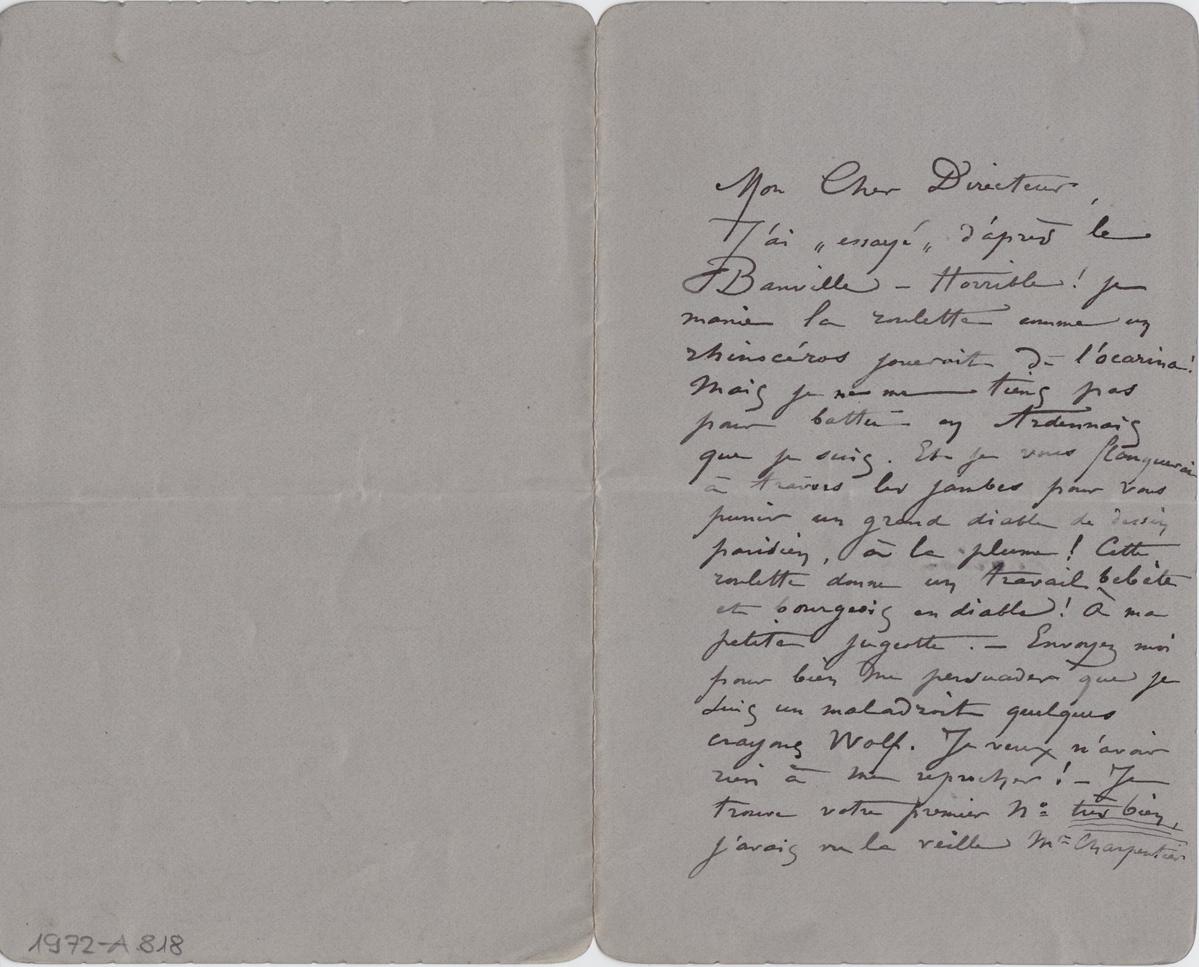 Mon Cher Directeur,
J'ai „essayé„ d'après le
Banville – Horrible ! je
manie la roulette comme un
rhinocéros jouerait de l'ocarina !
Mais je ne me tiens pas
pour battu en Ardennais
que je suis. Et je vous flanquerai
à travers les jambes pour vous
punir un grand diable de dessin
parisien, à la plume ! Cette
roulette donne un travail bebête
et bourgeois en diable ! À ma
petite jugeotte. – Envoyez moi
pour bien me persuader que je
suis un maladroit quelques
crayons Wolf. Je veux n'avoir
rien à me reprocher ! – Je
trouve votre premier No très bien,
j'avais vu la veille Mr Charpentier
1972-A 818